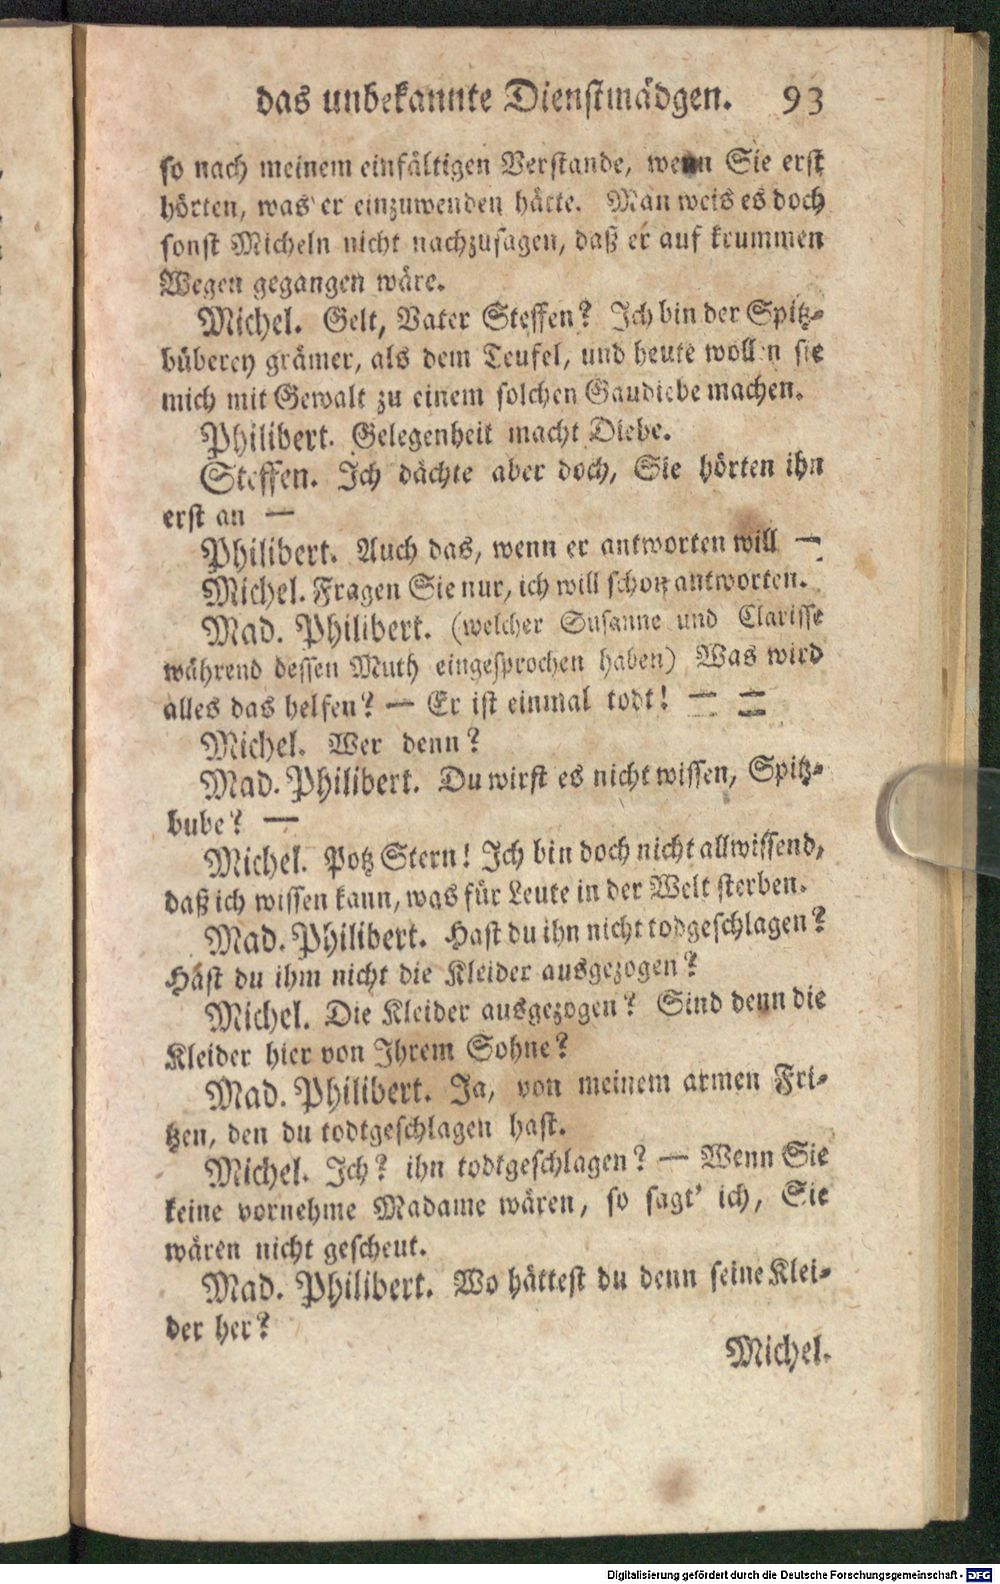 das unbekannte Dienstmädgen. 93
so nach meinem einfältigen Verstande, wenn Sie erst
hörten, was er einzuwenden hätte. Man weis es doch
sonst Micheln nicht nachzusagen, daß er auf krummen
Wegen gegangen wäre.
Michel. Gelt, Vater Steffen? Ich bin der Spitz-
büberey grämer, als dem Teufel, und heute wollen sie
mich mit Gewalt zu einem solchen Gaudiebe machen.
Philibert. Gelegenheit macht Diebe.
Steffen. Ich dächte aber doch, Sie hörten ihn
erst an —
Philibert. Auch das, wenn er antworten will —
Michel. Fragen Sie nur, ich will schon antworten.
Mad. Philibert. (welcher Susanne und Clarisse
während dessen Muth eingesprochen haben) Was wird
alles das helfen? — Er ist einmal todt! — —
Michel. Wer denn?
Mad. Philibert. Du wirst es nicht wissen, Spitz-
bube? —
Michel. Potz Stern! Ich bin doch nicht allwissend,
daß ich wissen kann, was für Leute in der Welt sterben.
Mad. Philibert. Hast du ihn nicht todgeschlagen?
Hast du ihm nicht die Kleider ausgezogen?
Michel. Die Kleider ausgezogen? Sind denn die
Kleider hier von Ihrem Sohne?
Mad. Philibert. Ja, von meinem armen Fri-
tzen, den du todtgeschlagen hast.
Michel. Ich? ihn todtgeschlagen? — Wenn Sie
keine vornehme Madame wären, so sagt' ich, Sie
wären nicht gescheut.
Mad. Philibert. Wo hättest du denn seine Klei-
der her?
Michel.
Digitalisierung gefördert durch die Deutsche Forschungsgemeinschaft - DFG